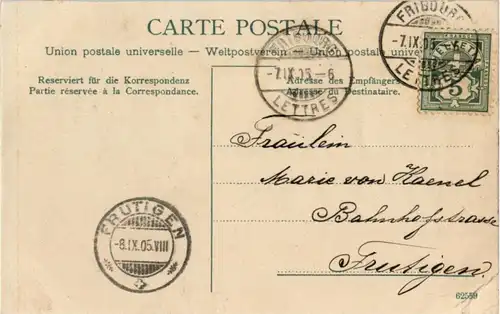 CARTE POSTALE
Union postale universelle — Weltpostverein — Union postale univer
Reserviert für die Korrespondenz
Partie réservée à la Correspondance.
Adresse des Empfängers
Adresse du Destinataire.
FRIBOURG
-7.IX.05.-6
LETTRES
FRIBOURG
-7.IX.05.
LETTRES
5
Fräulein
Marie von Haenel
Bahnhofstrasse
Frutigen.
FRUTIGEN
-8.IX.05.VIII
62559